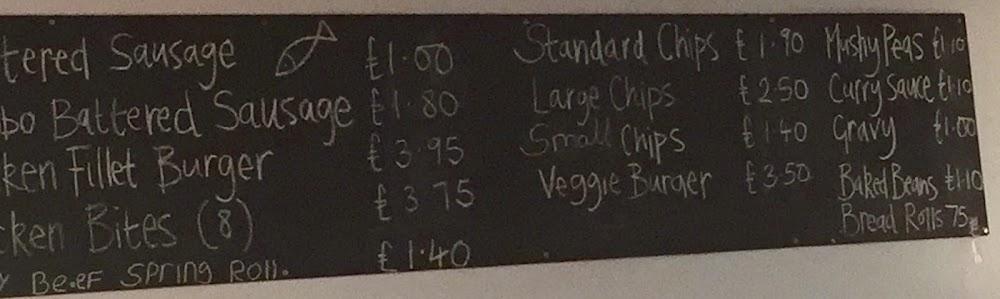 tered Sausage £1.00
bo Battered Sausage £1.80
ken Fillet Burger £3.95
cken Bites (8) £3.75
y Beef Spring Roll. £1.40
Standard Chips £1.90
Large Chips £2.50
Small Chips £1.40
Veggie Burger £3.50
Mushy Peas £1.10
Curry Sauce £1.10
Gravy £1.00
Baked Beans £1.10
Bread Rolls 75p